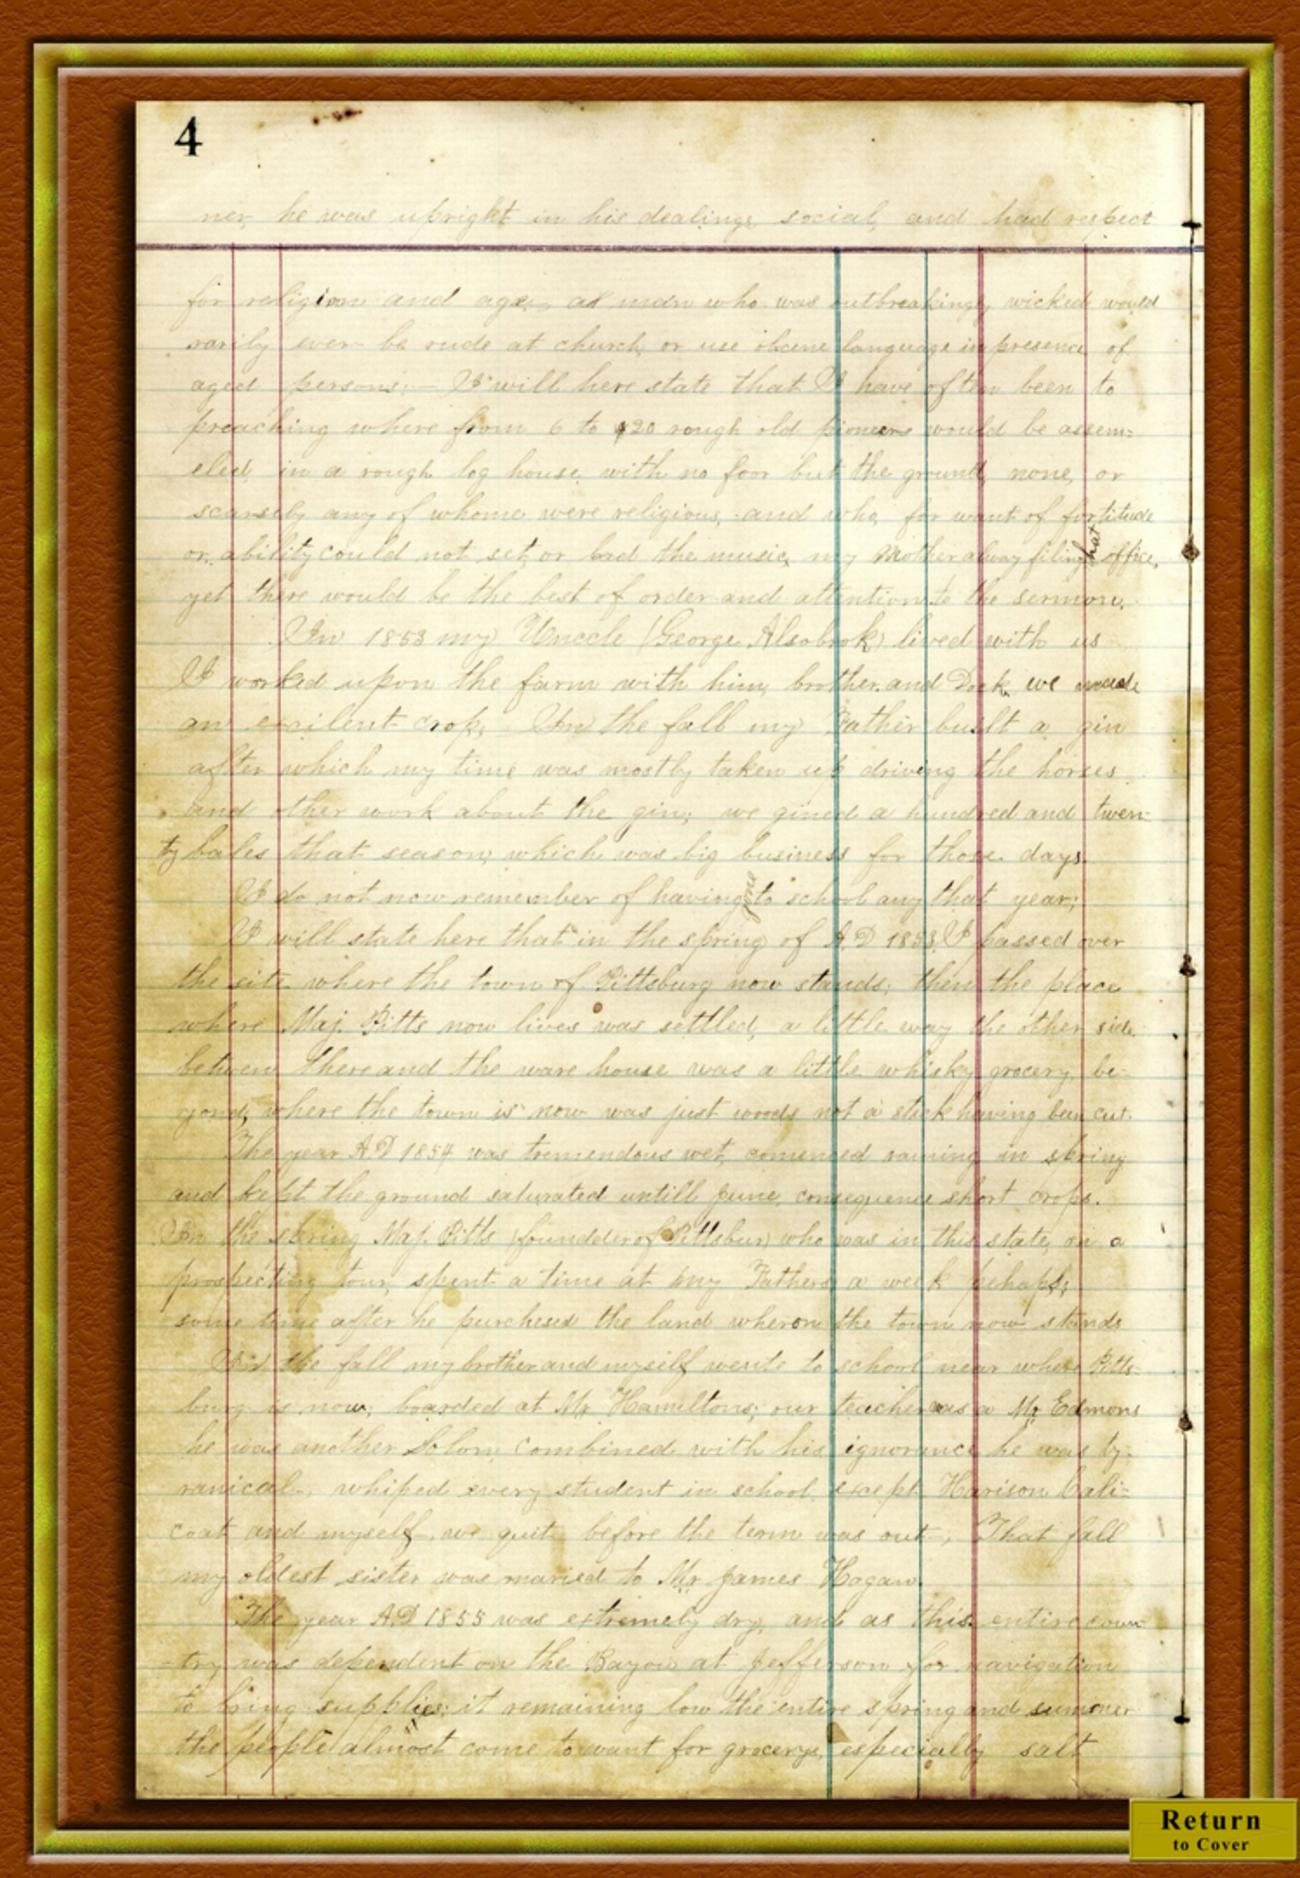 4
ner, he was upright in his dealings, social, and had respect
for religion and age, a man who was outbreakingly wicked would
rarily ever be rude at church, or use obcene language in presence of
aged persons:— I will here state that I have often been to
preaching where from 6 to 20 rough old pioneers would be assem=
eled, in a rough log house, with no foor but the ground, none, or
scarsely any of whome were religious, and who, for want of fortitude
or ability could not set, or lead the music, my Mother alway filing that office,
yet there would be the best of order and attention to the sermon.
In 1853 my Unccle (George Alsobrok) lived with us
I worked upon the farm with him, brother and Dock, we made
an excilent crop, In the fall my Father built a gin
after which my time was mostly taken up driving the horses
and other work about the gin; we gined a hundred and twen-
ty bales that season, which was big business for those days.
I do not now remember of having gone to school any that year;
I will state here that in the spring of A.D 1853, I passed over
the site where the town of Pittsburg now stands; then the place
where Maj. Pitts now lives was settled, a little way the other side
between there and the ware house was a little whisky grocery, be-
yond, where the town is now was just woods not a stick having been cut.
The year A.D 1854 was tremendous wet, comenced raining in spring
and kept the ground saturated untill June, consequence short crops.
In the spring Maj. Pitts (foundder of Pittsbur) who was in this state, on a
prospecting tour, spent a time at my Fathers, a week pehaps,
some time after he purchesed the land wheron the town now stands
In the fall my brother and myself wente to school near where Pitts-
burg is now, boarded at Mr Hamiltons; our teacher was a Mr Edmons
he was another Solom, combined with his ignorance he was ty-
ranical-, whiped every student in school, except Harison Cali=
coat and myself, we quit before the term was out, That fall
my oldest sister was maried to Mr James Hogan.
The year A.D 1855 was extremely dry, and as this entire coun-
-try was dependent on the Bayou at Jefferson for navigation
to bring supplies; it remaining low the entire spring and summer
the people almost come to want for grocerys, especially salt
Return
to Cover